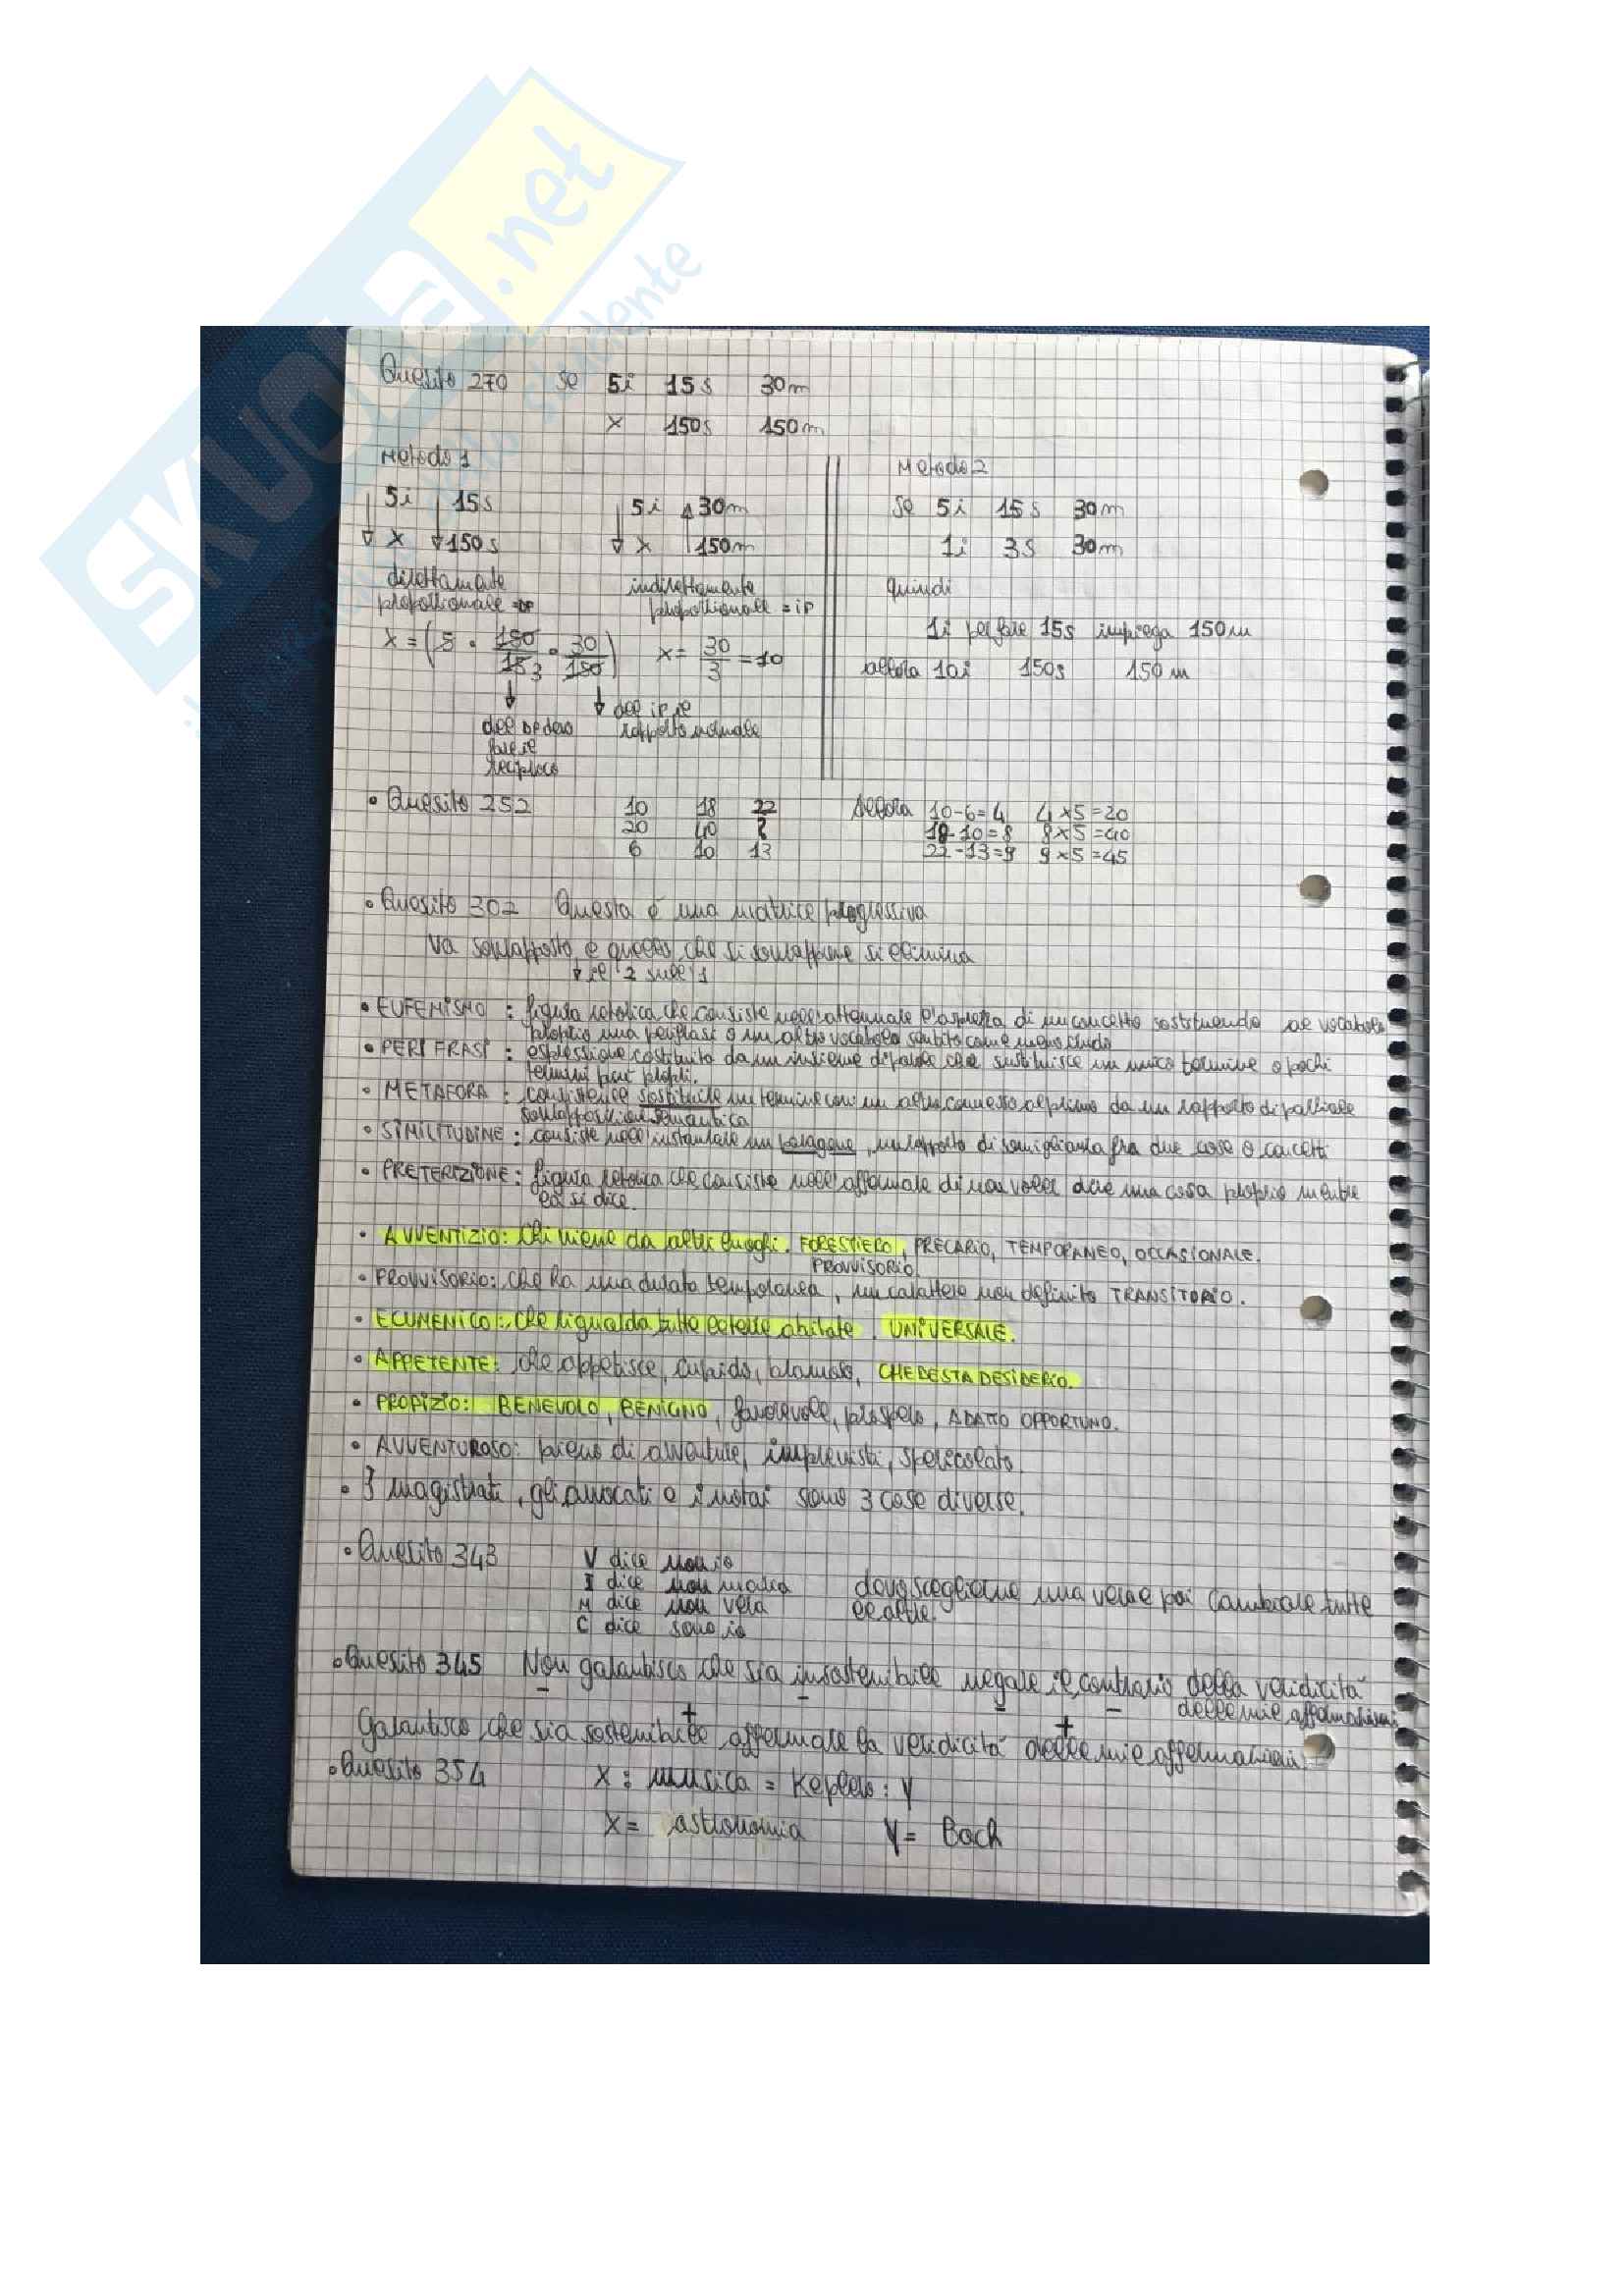 SKUOLA.net
Quesito 270 se 5i 15s 30m
x 150s 150m
Metodo 1
5i 15s 5i 30m
x 150s x 150m
direttamente proporzionale = DP
indirettamente proporzionale = iP
x = (5 · 150/15 3 · 30/150) x = 30/3 = 10
del DP devo fare il reciproco
del iP il rapporto normale
Metodo 2
se 5i 15s 30m
1i 3s 30m
quindi
1i per fare 15s impiega 150m
allora 10i 150s 150m
• Quesito 252 10 18 22 Allora 10-6=4 4×5=20
20 40 ? 18-10=8 8×5=40
6 10 13 22-13=9 9×5=45
• Quesito 302 Questa è una matrice progressiva
Va sovrapposto e quello che si sovrappone si elimina
il 2 sull'1
• EUFEMISMO : figura retorica che consiste nell'attenuare l'asprezza di un concetto sostituendo al vocabolo
proprio una perifrasi o un altro vocabolo sentito come meno crudo
• PERIFRASI : espressione costituito da un insieme di parole che sustituisce un unico termine o pochi
termini più propri.
• METAFORA : consiste nel sostituire un termine con un altro connesso al primo da un rapporto di parziale
sovrapposizione semantica
• SIMILITUDINE : consiste nell'instaurare un paragone, un rapporto di somiglianza fra due cose o concetti
• PRETERIZIONE : figura retorica che consiste nell'affermare di non voler dire una cosa proprio mentre
la si dice.
• AVVENTIZIO: Chi viene da altri luoghi. FORESTIERO, PRECARIO, TEMPORANEO, OCCASIONALE.
PROVVISORIO
• PROVVISORIO: che ha una durata temporanea, un carattere non definito TRANSITORIO.
• ECUMENICO: che riguarda tutte le terre abitate. UNIVERSALE.
• APPETENTE: che appetisce, cupido, bramoso, CHE DESTA DESIDERIO.
• PROPIZIO: BENEVOLO, BENIGNO, favorevole, prospero, ADATTO OPPORTUNO.
• AVVENTUROSO: pieno di avventure, imprevisti, spericolato.
• I magistrati, gli avvocati e i notai sono 3 cose diverse.
• Quesito 343 V dice non io
I dice non marco devo sceglierne una vera e poi cambiare tutte
M dice non vera le altre.
C dice sono io
• Quesito 345 Non garantisco che sia insostenibile negare il contrario della veridicità
- - - - delle mie affermazioni
+ +
Garantisco che sia sostenibile affermare la veridicità delle mie affermazioni.
• Quesito 354 X : musica = Keplero : Y
X = astronomia Y = Bach